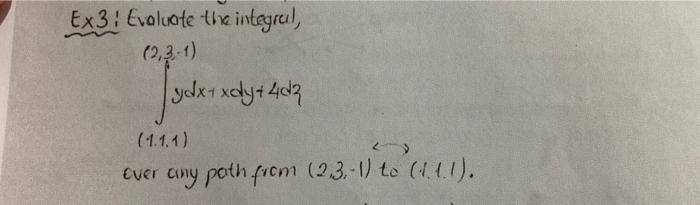 Ex3: Evaluate the integral,
(2,3,-1)
∫ydx+xdy+4dz
(1.1.1)
over any path from (2,3,-1) to (1.1.1).